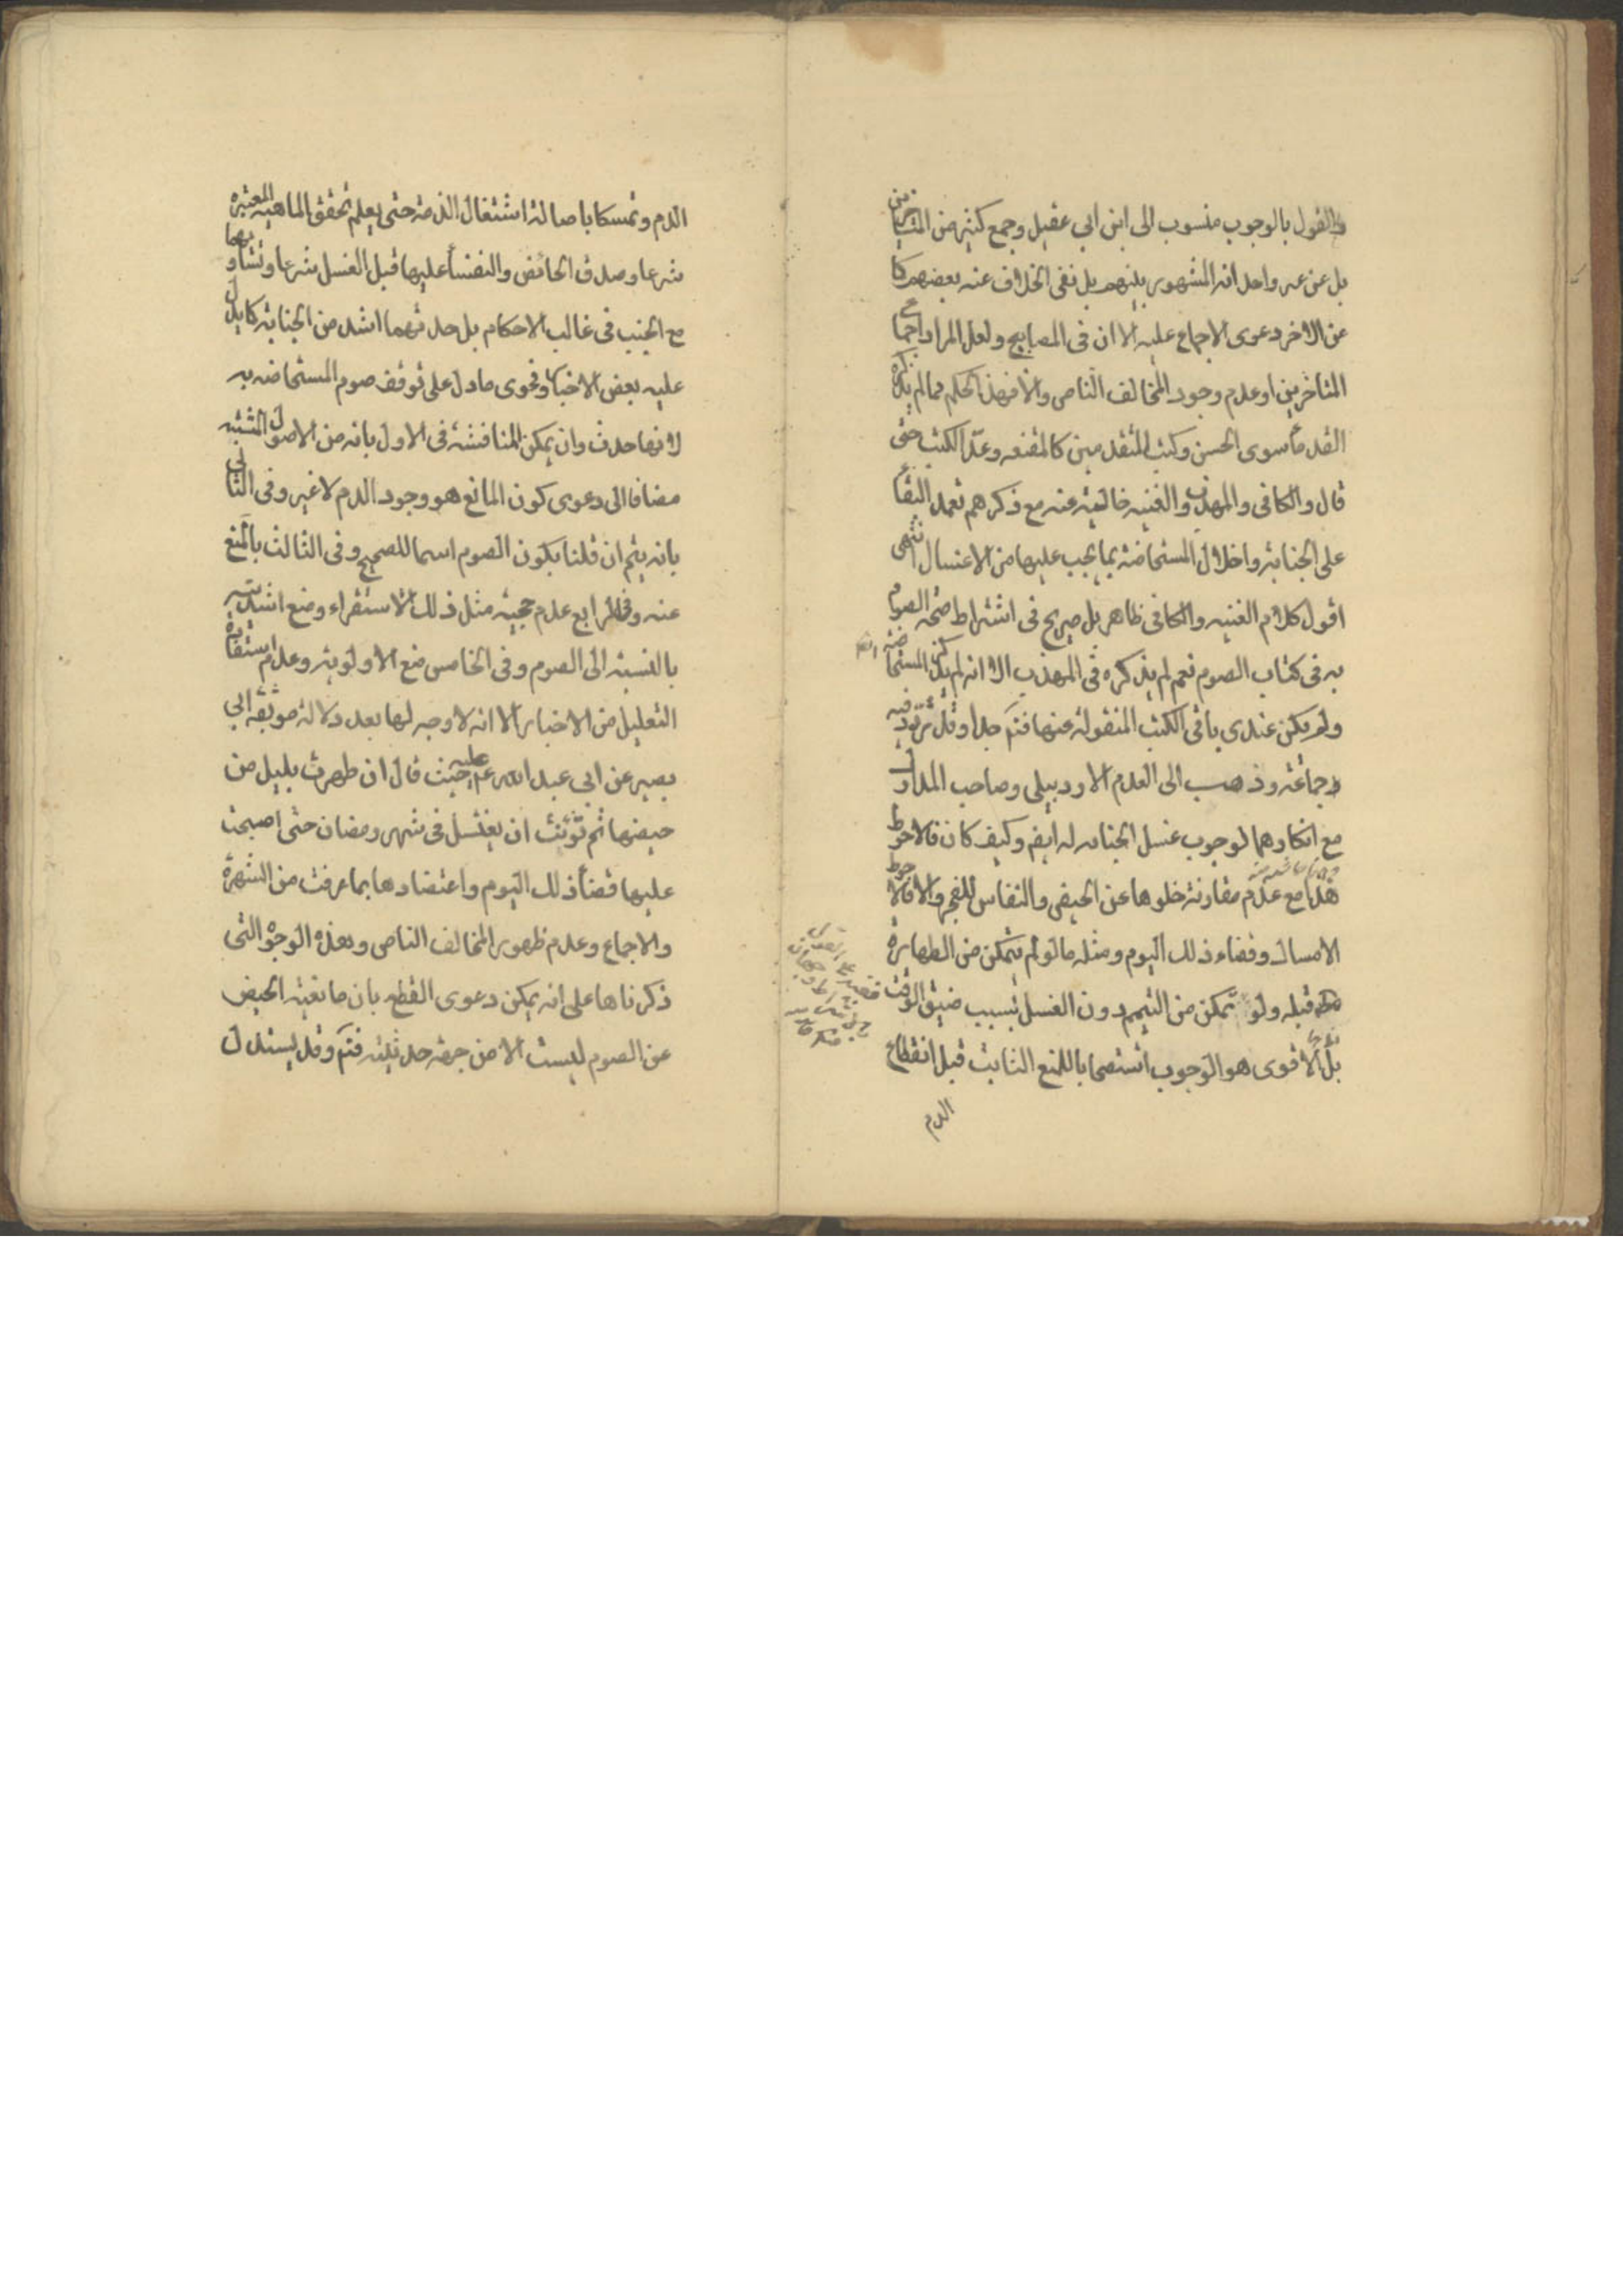 والقول بالوجوب منسوب الى ابن ابي عقيل وجمع كثير من المتأخرين
بل عن غير واحد انه المشهور بينهم بل نفى الخلاف عنه بعضهم كما
عن الاخر دعوى الاجماع عليه الا ان في المصابيح ولعل المراد اجماع
المتاخرين او عدم وجود المخالف الناص والا فهذا الحكم مما لم يذكره
القدماء سوى الحسن وكتب المتقدمين كالمقنعه وعد الكتب حتى
قال والكافي والمهذب والغنيه خاليه عنه مع ذكرهم تعمد البقاء
على الجنابة واخلال المستحاضة بما يجب عليها من الاغتسال انتهى
اقول كلام الغنيه والكافي ظاهر بل صريح في اشتراط صحه الصوم
به في كتاب الصوم نعم لم يذكره في المهذب الا انه لم يذكر المستحاضة ايضا
ولم يكن عندى باقى الكتب المنقولة عنها فتم جدا وقد تردد فيه
جماعة وذهب الى العدم الاردبيلى وصاحب المدارك
مع انكارهما لوجوب غسل الجنابه له ايضا وكيف كان فالاحوط
هذا مع عدم مقارنة خلوها عن الحيض والنفاس للفجر والا فالاحوط
الامساك وقضاء ذلك اليوم ومثله ما لو لم يتمكن من الطهارة
قبله ولو تمكن من التيمم دون الغسل بسبب ضيق الوقت
بل الاقوى هو الوجوب استصحابا للمنع الثابت قبل انقطاع
الدم
الدم وتمسكا باصالة اشتغال الذمة حتى يعلم تحقق الماهيه المعتبره
شرعا وصدق الحائض والنفساء عليها قبل الغسل شرعا وتساويهما
مع الجنب في غالب الاحكام بل حدثهما اشد من الجنابة كما يدل
عليه بعض الاخبار وفحوى ما دل على توقف صوم المستحاضه به
لانها حدث وان يمكن المناقشة في الاول بانه من الاصول المثبته
مضافا الى دعوى كون المانع هو وجود الدم لا غير وفي الثاني
بانه يتم ان قلنا بكون الصوم اسما للصحيح وفي الثالث بالمنع
عنه وفي الرابع عدم حجية مثل ذلك الاستقراء ومنع اشديته
بالنسبة الى الصوم وفي الخامس منع الاولوية وعدم استفادة
التعليل من الاخبار الا انه لا وجه لها بعد دلالة موثقه ابي
بصير عن ابي عبد الله عليه حيث قال ان طهرت بليل من
حيضها ثم توئنت ان يغتسل في شهر رمضان حتى اصبحت
عليها قضاء ذلك اليوم واعتضادها بما عرفت من الشهرة
والاجماع وعدم ظهور المخالف الناص وبهذه الوجوه التى
ذكرناها على انه يمكن دعوى القطع بان مانعية الحيض
عن الصوم ليست الا من جهة حدثيته فتم وقد يستدل